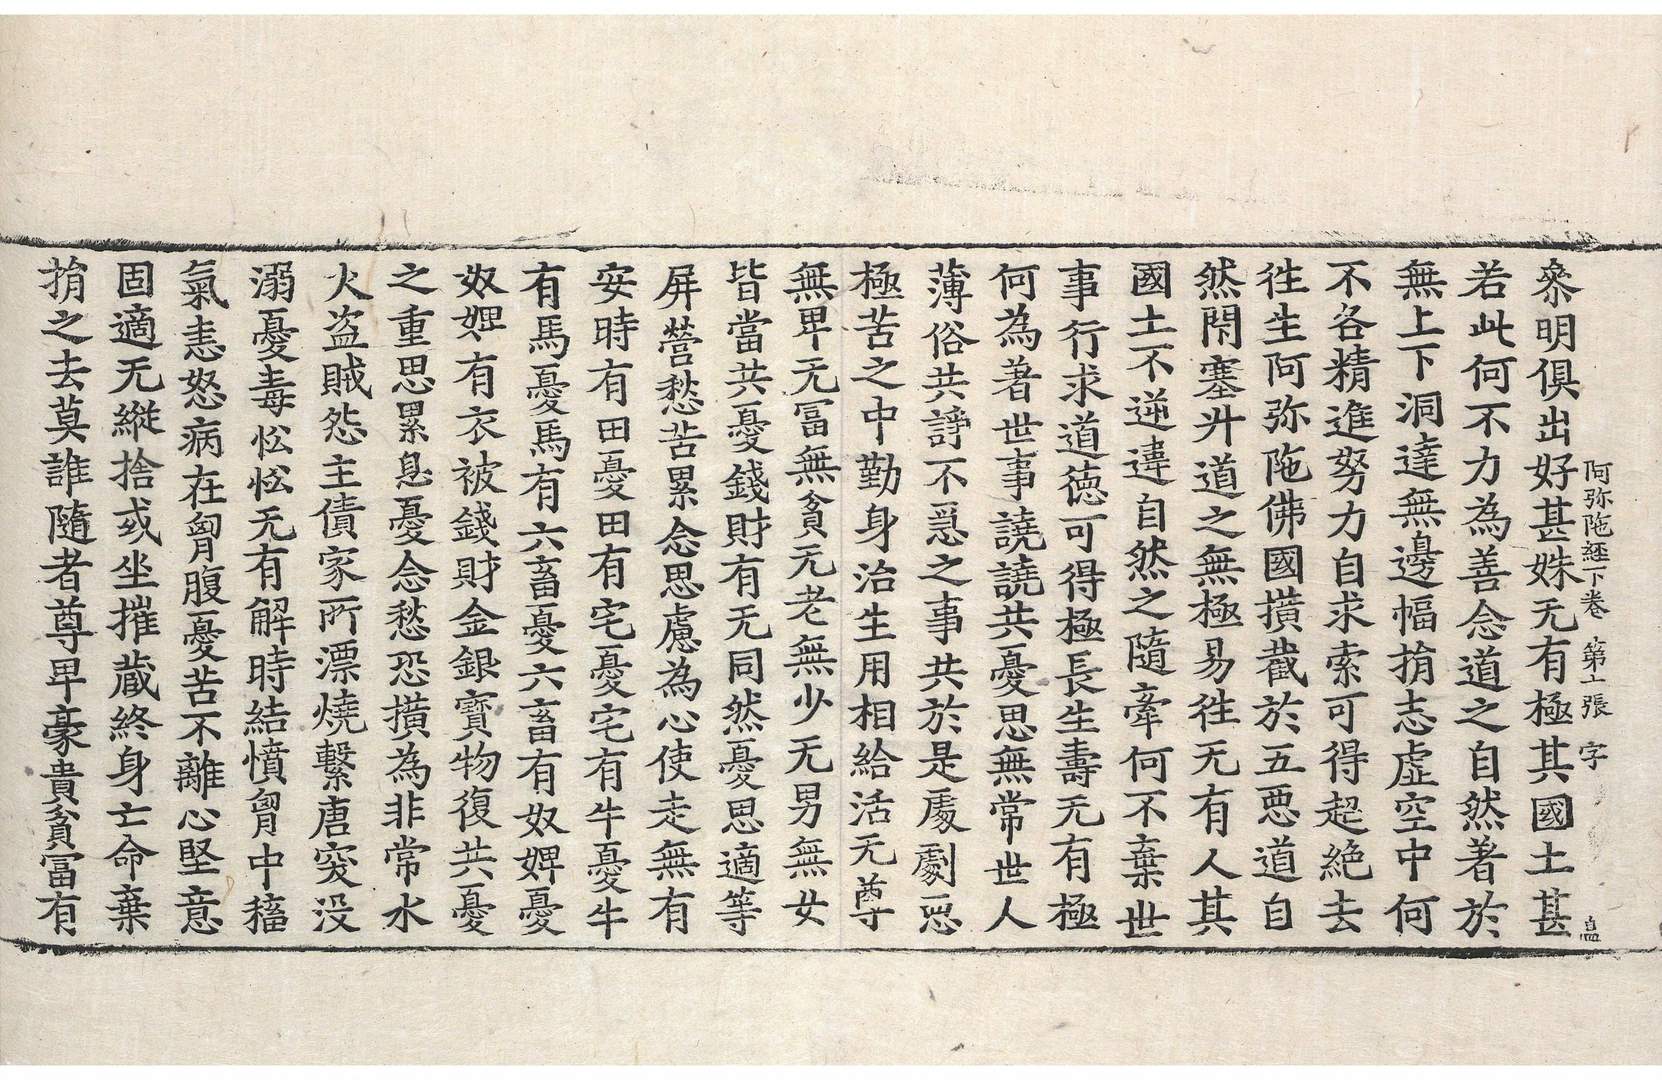 阿弥陁経下巻 第十張 字
叅明俱出好甚姝无有極其國土甚
若此何不力為善念道之自然著於
無上下洞達無邊幅捎志虛空中何
不各精進努力自求索可得超絶去
徃生阿弥陁佛國撗截於五惡道自
然閇塞升道之無極易徃无有人其
國土不逆違自然之隨牽何不棄世
事行求道德可得極長生壽无有極
何為著世事譊譊共憂思無常世人
薄俗共諍不急之事共於是處劇惡
極苦之中勤身治生用相給活无尊
無卑无冨無貧无老無少无男無女
皆當共憂錢財有无同然憂思適等
屏營愁苦累念思慮為心使走無有
安時有田憂田有宅憂宅有牛憂牛
有馬憂馬有六畜憂六畜有奴婢憂
奴婢有衣被錢財金銀寶物復共憂
之重思累息憂念愁恐撗為非常水
火盗賊怨主債家所漂燒繫唐突没
溺憂毒忪忪无有解時結憤胷中稸
氣恚怒病在胷腹憂苦不離心堅意
固適无縱捨或坐摧藏終身亡命棄
捎之去莫誰隨者尊卑豪貴貧冨有